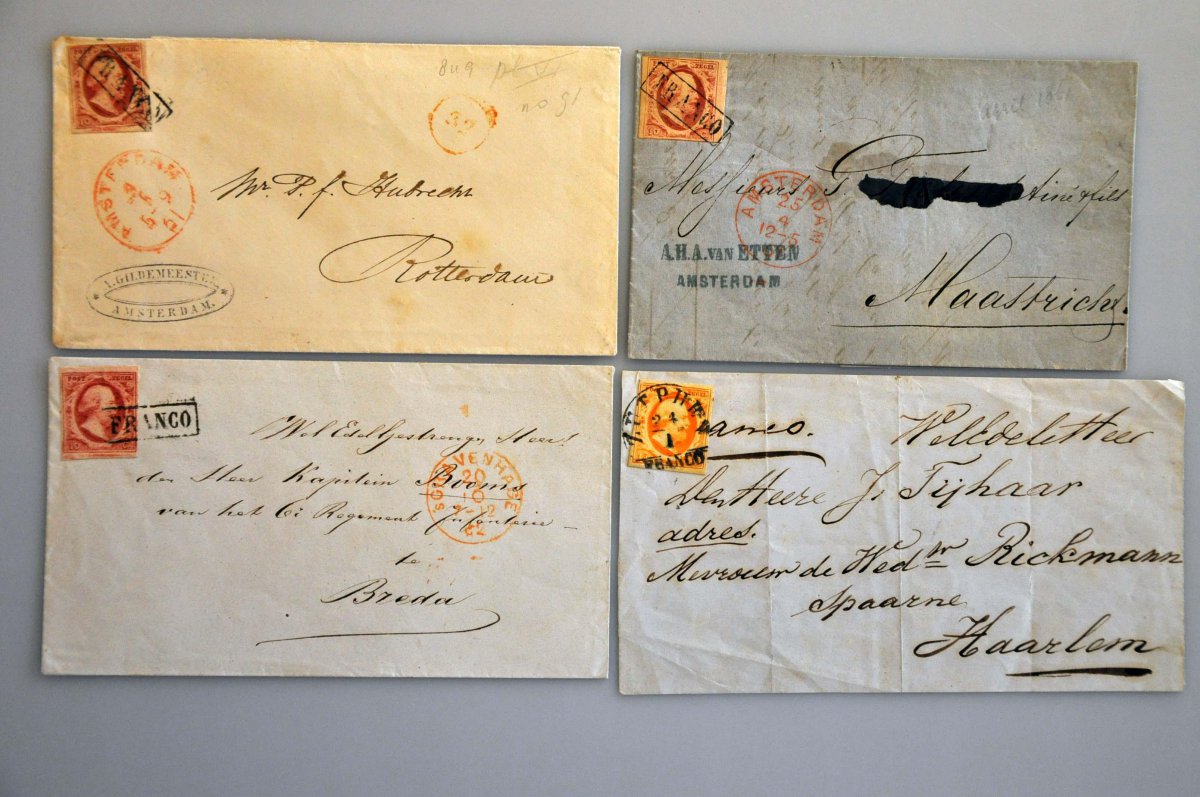 FRANCO
8u9 pl VI
no 91
32
AMSTERDAM
Mr. P. f. Hubrecht
Rotterdam
A. GILDEMEESTER.
AMSTERDAM.
POST ZEGEL
FRANCO
april 1861
Messieurs G
Ainé & fils
AMSTERDAM
25
4
12-5
A.H.A. VAN ETTEN
AMSTERDAM
Maastricht.
POST ZEGEL
FRANCO
WelEdelGestrenge Heer
den Heer Kapitein Booms
van het 6e Regement Infanterie
te
Breda
S GRAVENHAGE
20
10
62
ZUTPHEN
24
1
FRANCO
Franco. WelEdele Heer
Den Heere J. Tijhaar
adres.
Mevrouw de Wed. Rickmann
Spaarne
Haarlem